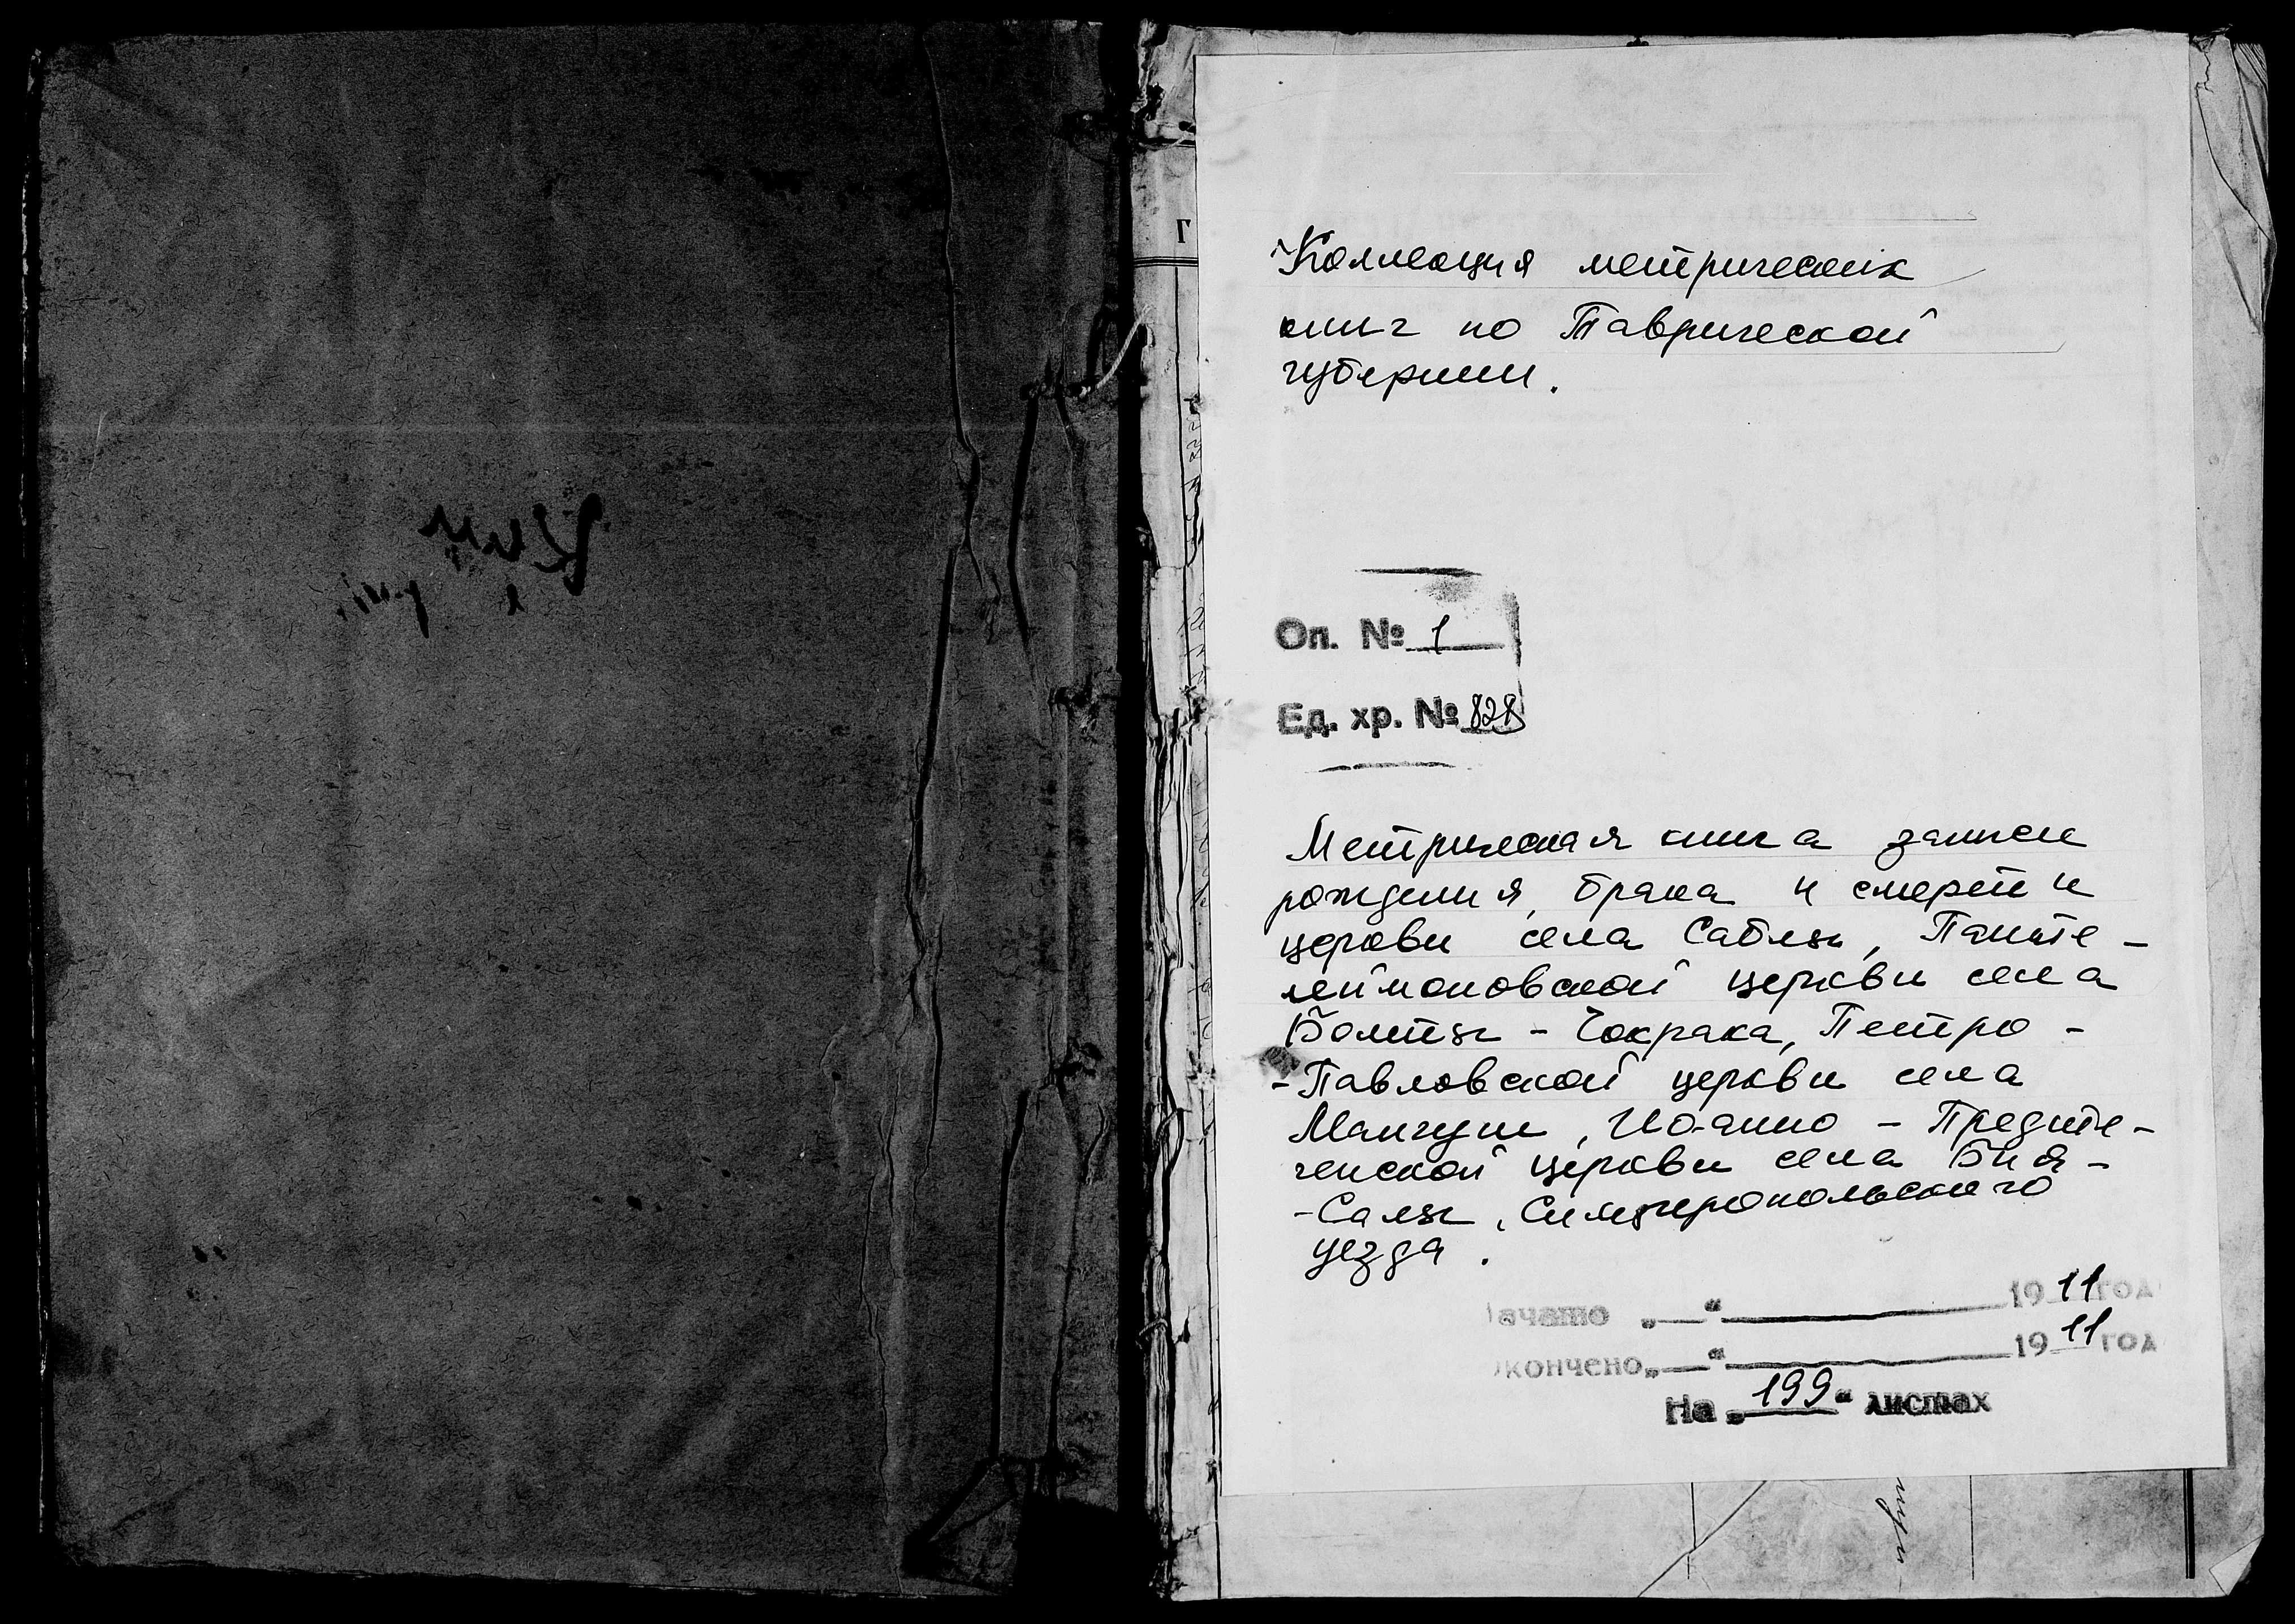 Коллекция метрических
книг по Таврической
губернии.
Оп. № 1
Ед. хр. № 828
Метрическая книга записи
рождения, брака и смерти
церкви села Саблы, Панте-
леймоновской церкви села
Бомты-Чокрака, Петро-
-Павловской церкви села
Мангуш, Иоанно-Предте-
ченской церкви села Бия-
-Салы, Симферопольского
уезда.
Начато „__“ ____ 1911 год
Окончено „__“ ____ 1911 год
На „199“ листах